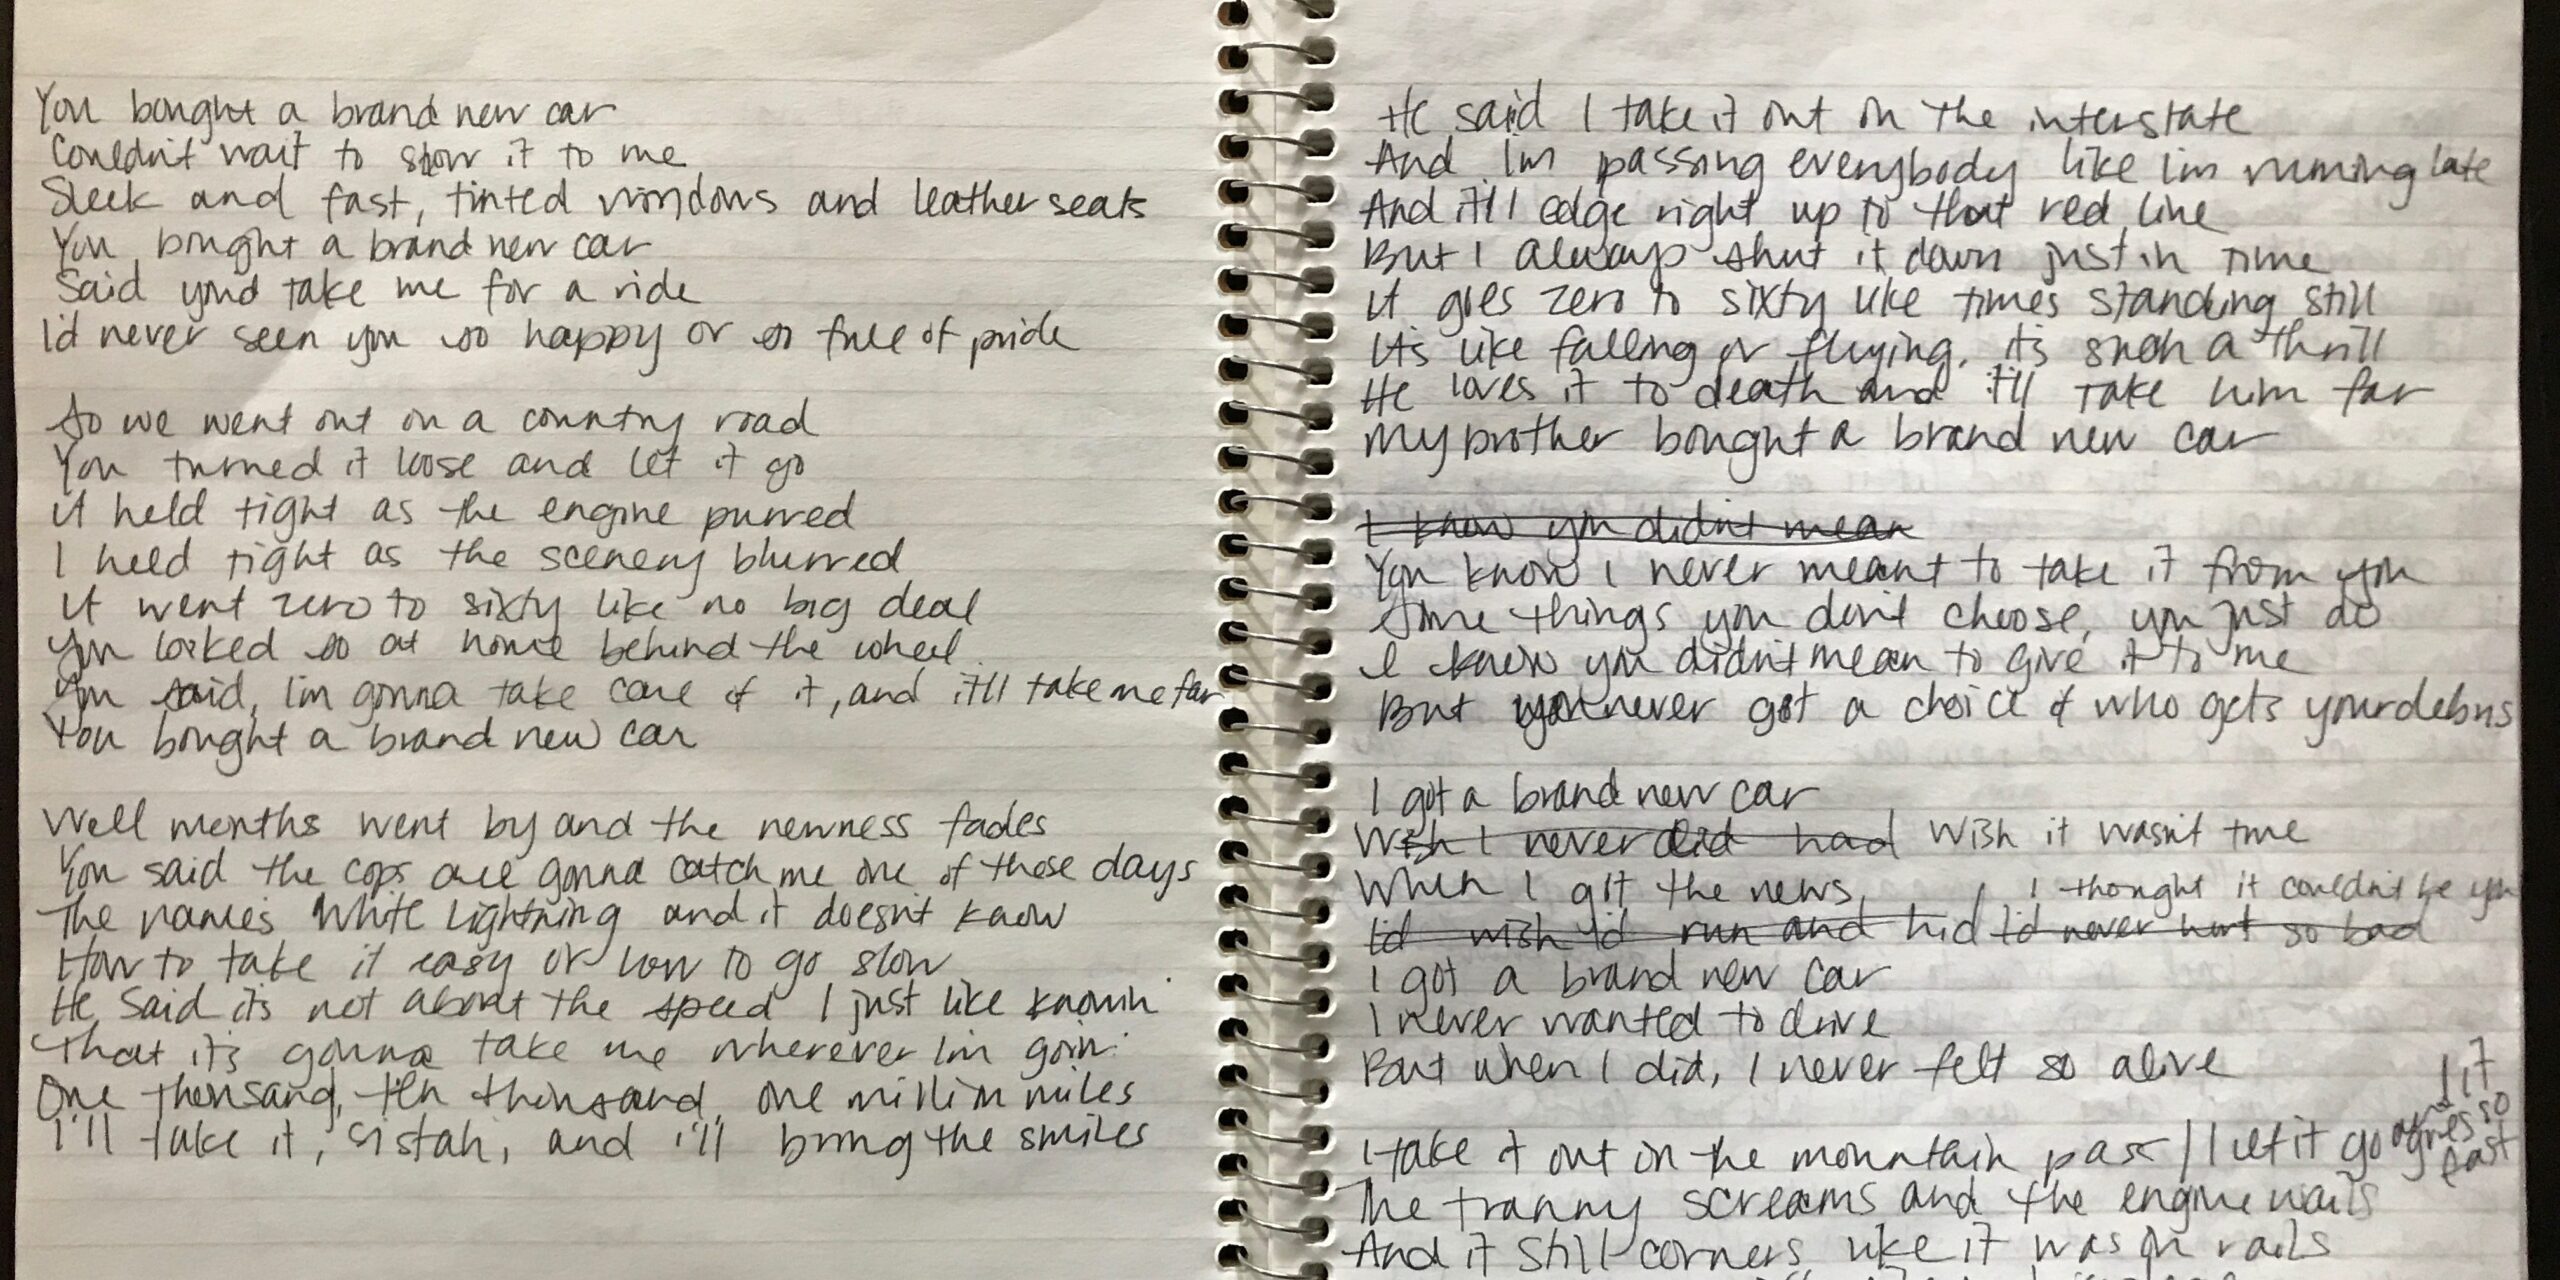 You bought a brand new car
Couldn't wait to show it to me
Sleek and fast, tinted windows and leather seats
You bought a brand new car
Said you'd take me for a ride
I'd never seen you so happy or so full of pride
So we went out on a country road
You turned it loose and let it go
It held tight as the engine purred
I held tight as the scenery blurred
It went zero to sixty like no big deal
You looked so at home behind the wheel
You said, I'm gonna take care of it, and it'll take me far
You bought a brand new car
Well months went by and the newness fades
You said the cops are gonna catch me one of these days
The name's White Lightning and it doesn't know
How to take it easy or how to go slow
He said it's not about the speed I just like knowin'
That it's gonna take me wherever I'm goin'
One thousand, ten thousand, one million miles
I'll take it, sistah, and I'll bring the smiles
He said I take it out on the interstate
And I'm passing everybody like I'm running late
And it'll edge right up to that red line
But I always shut it down just in time
It goes zero to sixty like times standing still
It's like falling or flying, it's such a thrill
He loves it to death and it'll take him far
My brother bought a brand new car
I know you didn't mean
You know I never meant to take it from you
Some things you don't choose, you just do
I know you didn't mean to give it to me
But you never got a choice of who gets your debris
I got a brand new car
Wish I never did had Wish it wasn't true
When I got the news, I thought it couldn't be you
I'd wish I'd run and hid I'd never hurt so bad
I got a brand new car
I never wanted to drive
But when I did, I never felt so alive
I take it out in the mountain pass / I let it go and it goes so fast
The tranny screams and the engine wails
And it still corners like it was on rails